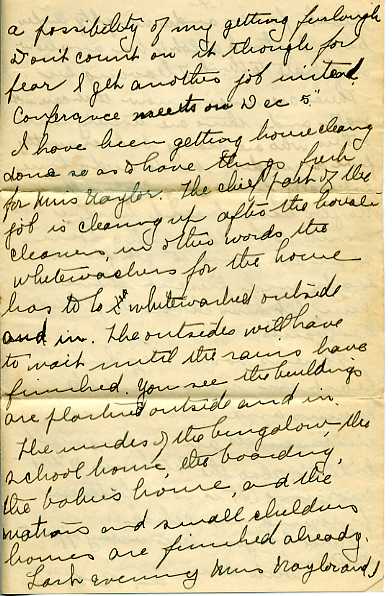 a possibility of my getting furlough
Don't count on it though for
fear I get another job instead.
Conference meets on Dec 5"
I have been getting housecleaning
done so as to have things fresh
for Miss Naylor. The chief part of the
job is cleaning up after the house
cleaners, in other words the
whitewashers for the house
has to be whitewashed outside
and in. The outsides will have
to wait until the rains have
finished. You see the buildings
are plastered outside and in.
The insides of the bungalow, the
school house, the boarding,
the babies house, and the
matrons and small childrens
homes are finished already.
Last evening Miss Naylor and I